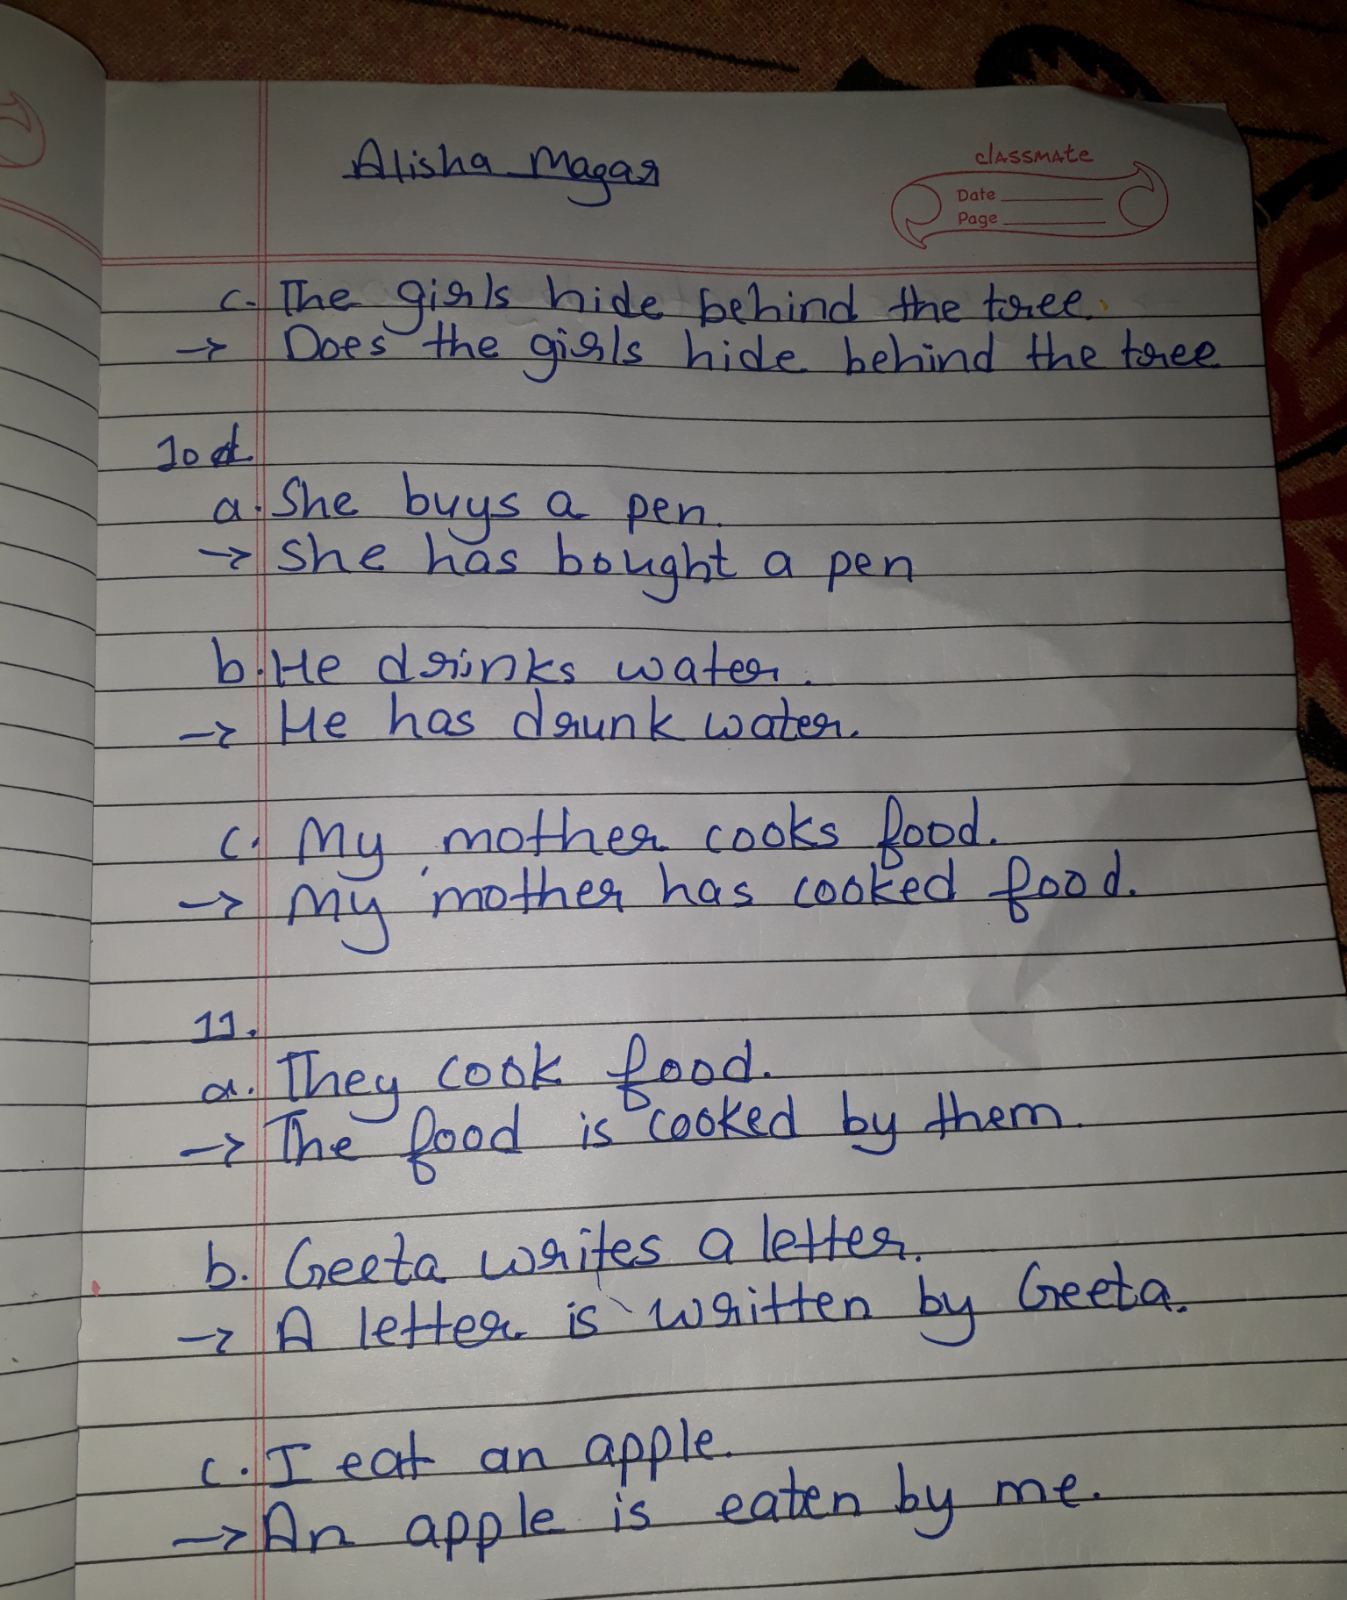 Alisha Magar
classmate
Date
Page
c. The girls hide behind the tree.
→ Does the girls hide behind the tree
10
a. She buys a pen.
→ She has bought a pen
b. He drinks water.
→ He has drunk water.
c. My mother cooks food.
→ My mother has cooked food.
11.
a. They cook food.
→ The food is cooked by them.
b. Geeta writes a letter.
→ A letter is written by Geeta.
c. I eat an apple.
→ An apple is eaten by me.